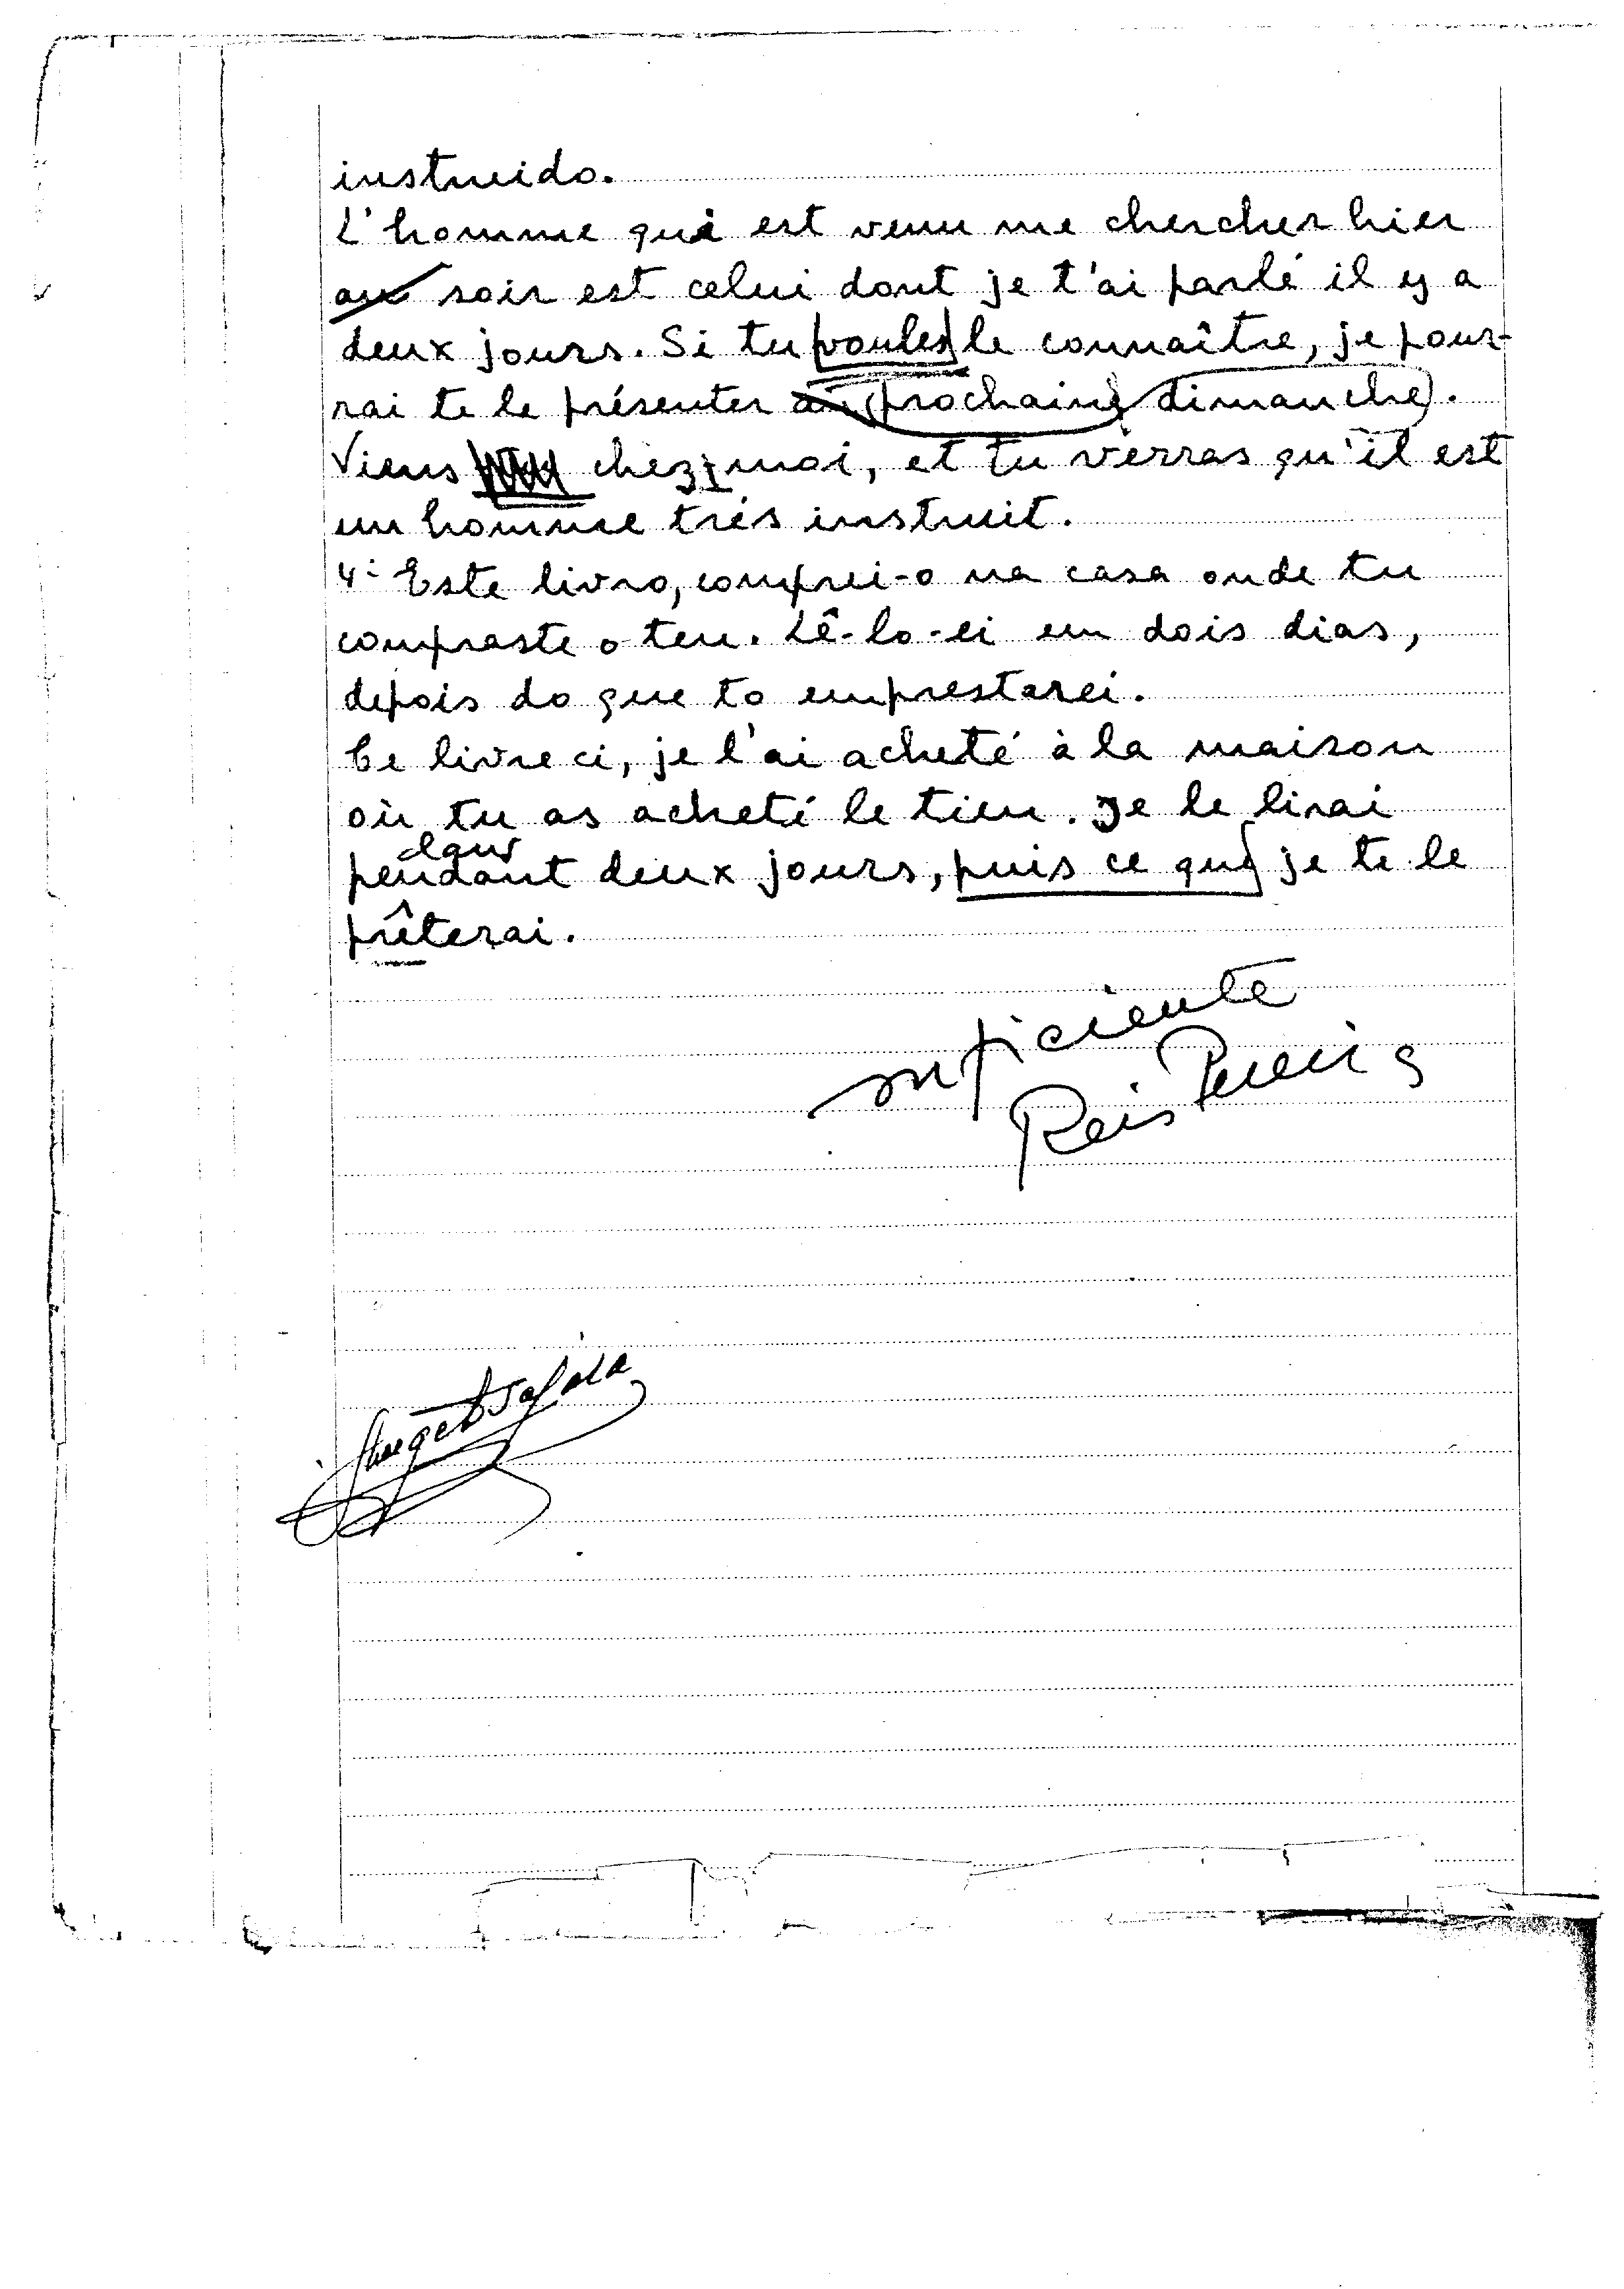 instruido.
L'homme qui est venu me chercher hier
au soir est celui dont je t'ai parlé il y a
deux jours. Si tu voules le connaître, je pour-
rai te le présenter au prochaine dimanche.
Viens chez moi, et tu verras qu'il est
un homme trés instruit.
4- Este livro, comprei-o na casa onde tu
compraste o teu. Lê-lo-ei em dois dias,
depois do que to emprestarei.
Ce livre ci, je l'ai acheté à la maison
où tu as acheté le tien. Je le lirai
dans
pendant deux jours, puis ce que je te le
prêterai.
suficiente
Reis Pereira